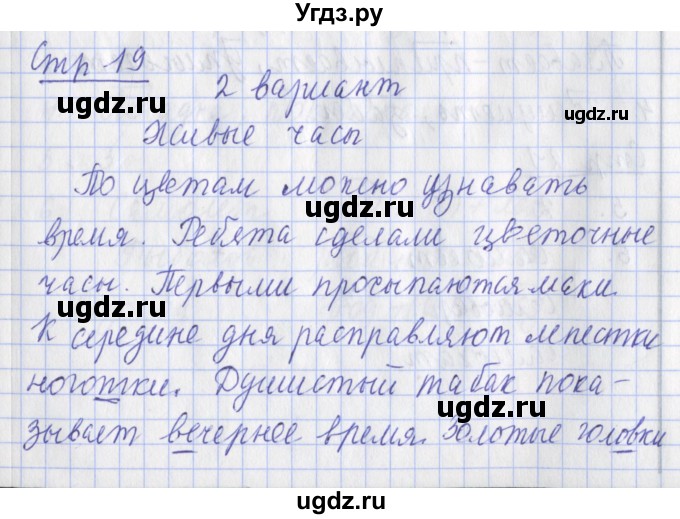 Угдз.ру
Стр 19
2 вариант
Живые часы
По цветам можно узнавать
время. Ребята сделали цветочные
часы. Первыми просыпаются маки.
К середине дня расправляют лепестки
ноготки. Душистый табак пока-
зывает вечернее время. Золотые головки
ugdz.ru
ugdz.ru
ugdz.ru
ugdz.ru
ugdz.ru
ugdz.ru
ugdz.ru
ugdz.ru
ugdz.ru